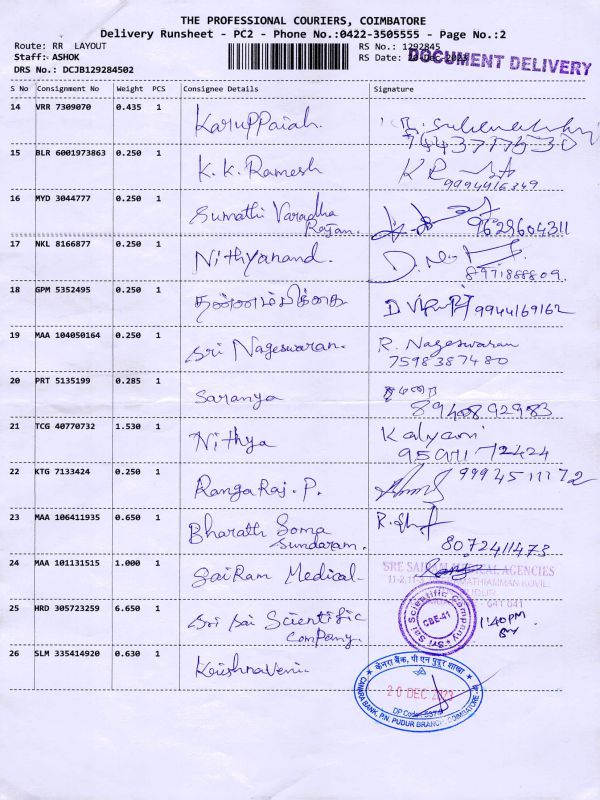 THE PROFESSIONAL COURIERS, COIMBATORE
Delivery Runsheet - PC2 - Phone No.:0422-3505555 - Page No.:2
Route: RR LAYOUT
Staff: ASHOK
DRS No.: DCJB129284502
RS No.: 1292845
RS Date:
DOCUMENT DELIVERY
S No Consignment No Weight PCS Consignee Details Signature
14 VRR 7309070 0.435 1 Karuppaiah.
15 BLR 6001973863 0.250 1 K.K. Ramesh
9994416349
16 MYD 3044777 0.250 1 Sumathi Varadha
Rajan. 9629604311
17 NKL 8166877 0.250 1 Nithyanand.
8971888809.
18 GPM 5352495 0.250 1 தன்னம்பிக்கை 9944169162
19 MAA 104050164 0.250 1 Sri Nageswaran. R. Nageswaran
7598387480
20 PRT 5135199 0.285 1 Saranya
21 TCG 40770732 1.530 1 Nithya Kalyani
22 KTG 7133424 0.250 1 RangaRaj. P.
23 MAA 106411935 0.650 1 Bharath Soma
Sundaram. 8072411473
24 MAA 101131515 1.000 1 SaiRam Medical
SRE SAI MEDICAL AGENCIES
25 HRD 305723259 6.650 1 Sri Sai Scientific
Company.
Sri Sai Scientific Company
CBE-41
1:40PM
26 SLM 335414920 0.630 1 Krishnaveni.
केनरा बैंक, पी एन पुदूर शाखा
20 DEC 2023
CANARA BANK, P.N. PUDUR BRANCH, COIMBATORE